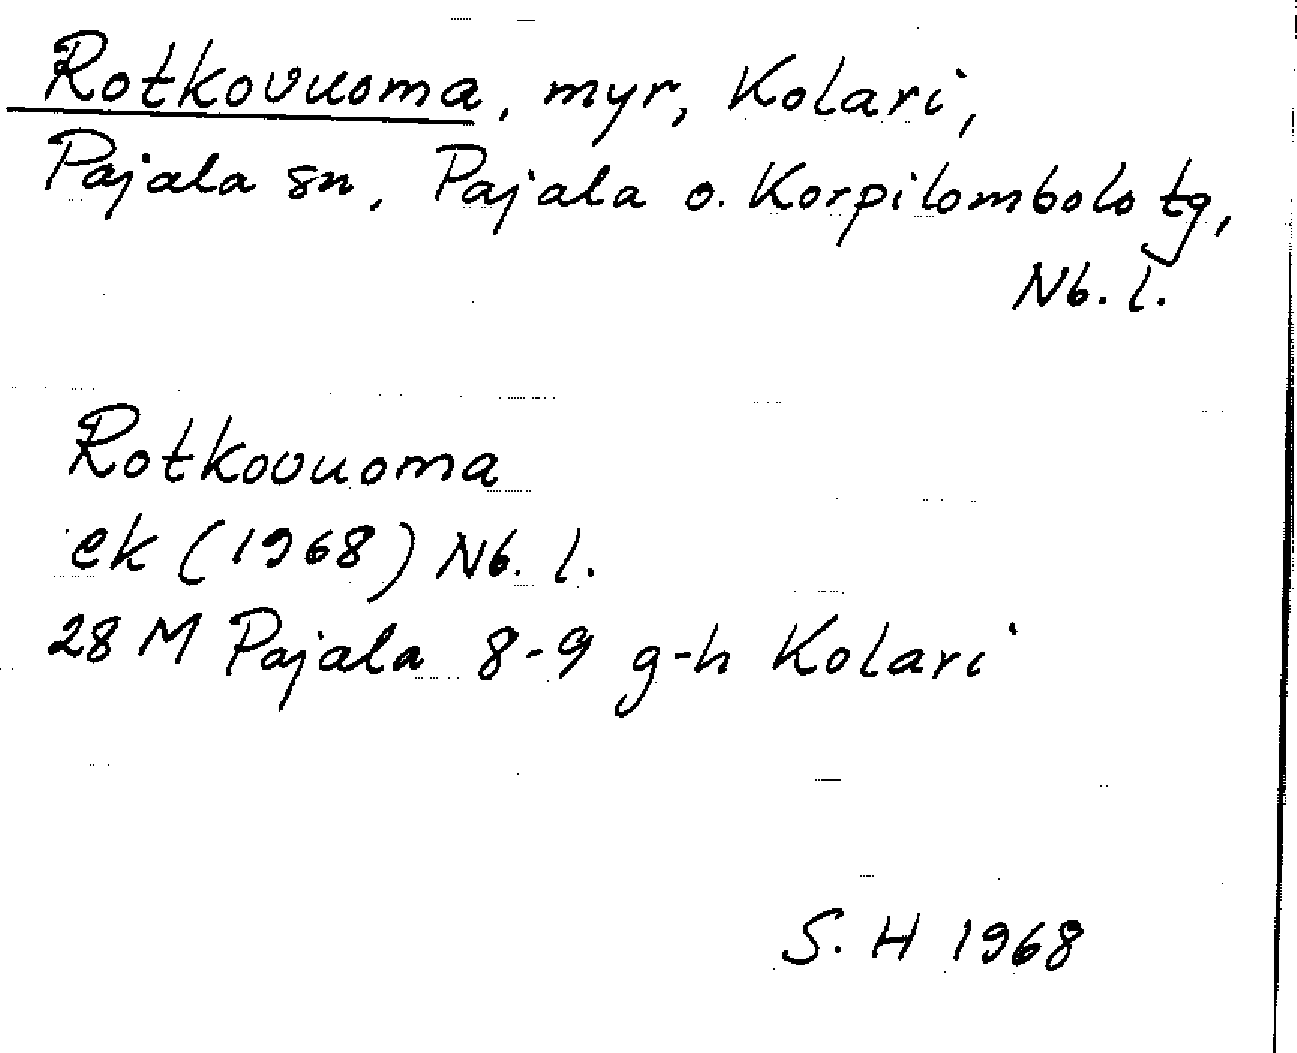 Rotkovuoma, myr, Kolari,
Pajala sn, Pajala o. Korpilombolo tg,
Nb. l.
Rotkovuoma
ek (1968) Nb. l.
28 M Pajala 8-9 g-h Kolari
S. H 1968